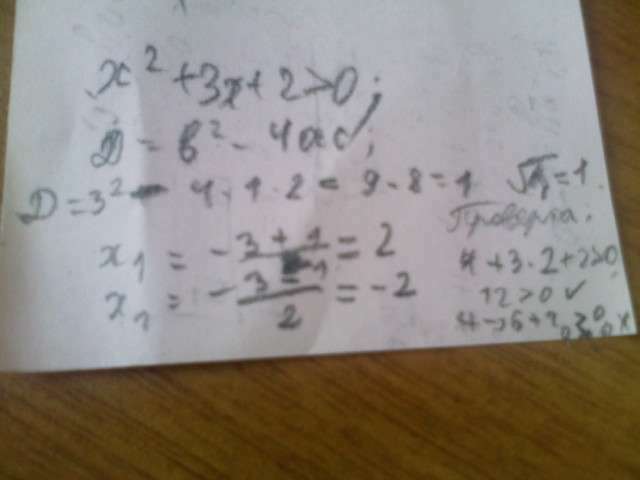 x² + 3x + 2 > 0;
D = b² - 4ac;
D = 3² - 4 · 1 · 2 = 9 - 8 = 1 √D = 1.
Проверка:
x₁ = -3 + 1 / = 2
4 + 3 · 2 + 2 > 0
x₂ = -3 - 1 / 2 = -2
12 > 0 ✓
4 - 6 + 2 > 0